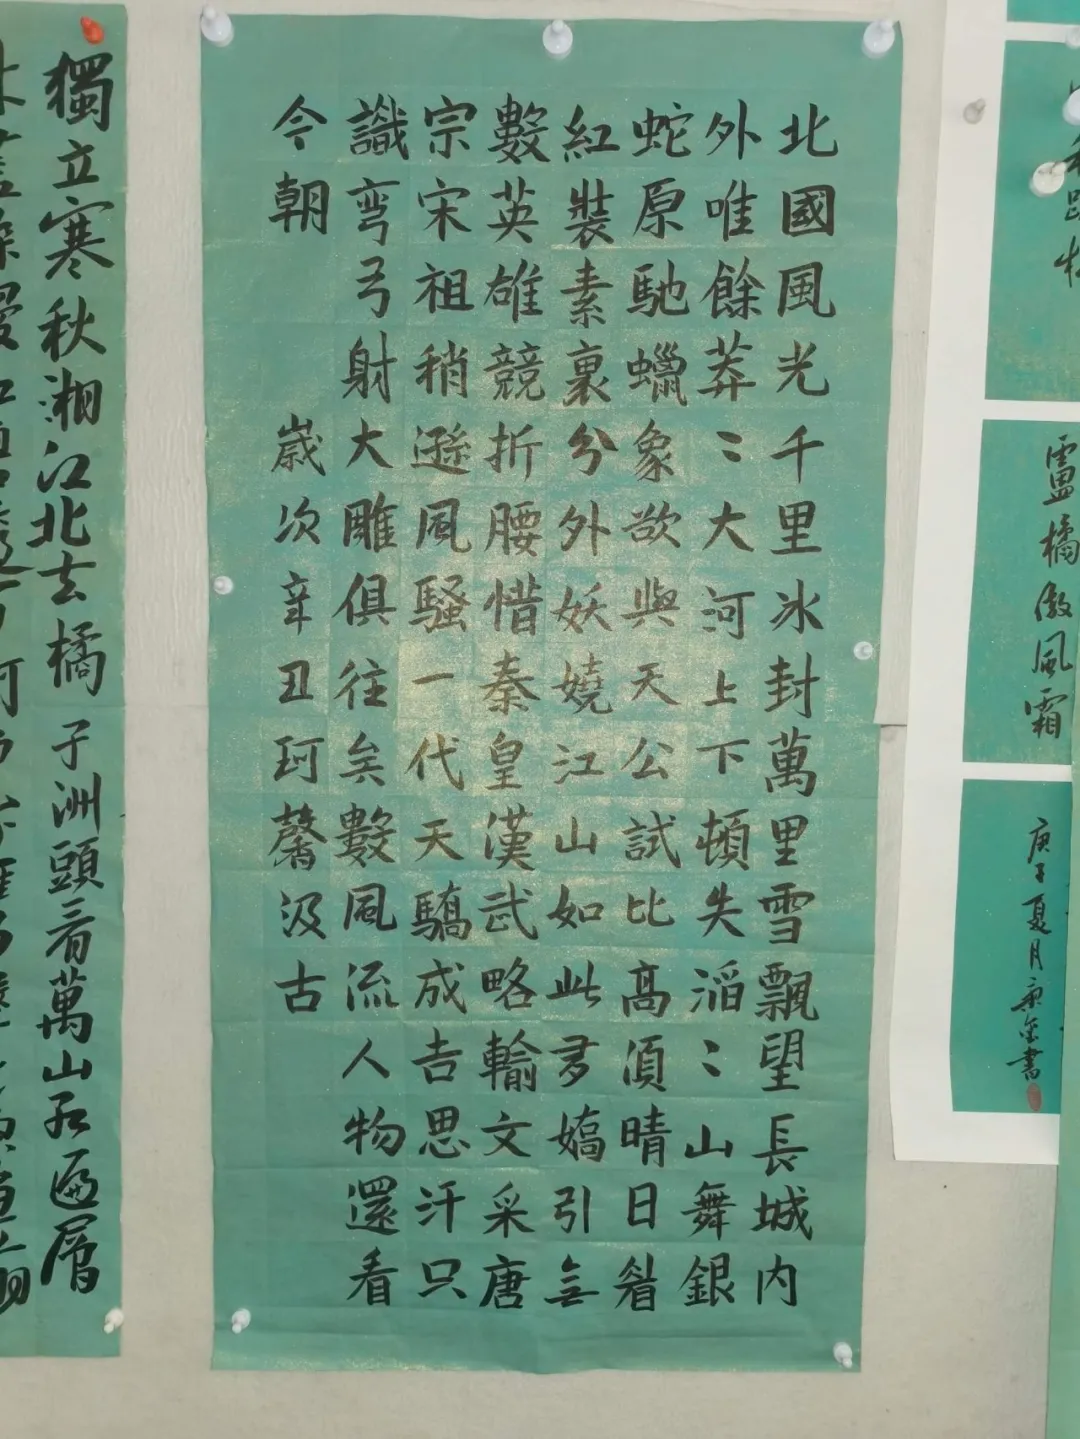 盧橘傲風霜
庚子夏月
北國風光千里冰封萬里雪飄望長城內
外唯餘莽〻大河上下頓失滔〻山舞銀
蛇原馳蠟象欲與天公試比高須晴日看
紅裝素裹分外妖嬈江山如此多嬌引無
數英雄競折腰惜秦皇漢武略輸文采唐
宗宋祖稍遜風騷一代天驕成吉思汗只
識彎弓射大雕俱往矣數風流人物還看
今朝 歲次辛丑珂馨汲古
獨立寒秋湘江北去橘子洲頭看萬山紅遍層